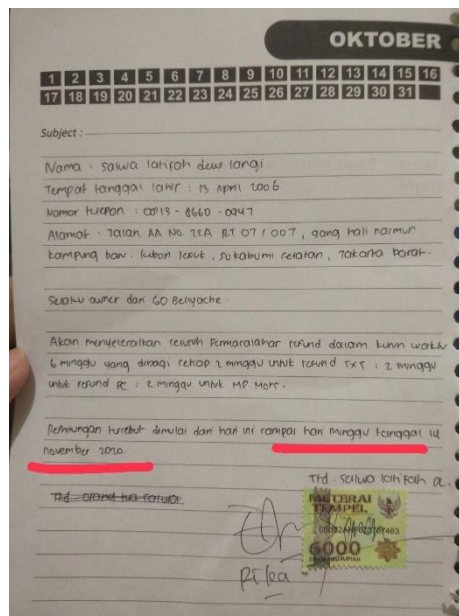 OKTOBER
1 2 3 4 5 6 7 8 9 10 11 12 13 14 15 16
17 18 19 20 21 22 23 24 25 26 27 28 29 30 31
Subject :
Nama : Salwa latifah dewi langi
Tempat tanggal lahir : 13 April 2006
Nomor telepon : 0813 - 8660 - 0947
Alamat : Jalan AA No 22A RT 07 / 007 , gang haji
kampung baru . kebon jeruk , sukabumi selatan , Jakarta barat .
Selaku owner dan GO Bellyache .
Akan menyelesaikan seluruh permasalahan refund dalam kurun waktu
6 minggu yang dibagi setiap 2 minggu untuk refund TXT : 2 minggu
untuk refund PC : 2 minggu untuk MP Mots .
Perhitungan tersebut dimulai dari hari ini sampai hari minggu tanggal 14
november 2020
Ttd salwa latifah d.
Ttd
METERAI
TEMPEL
6000
ENAM RIBU RUPIAH
Rika